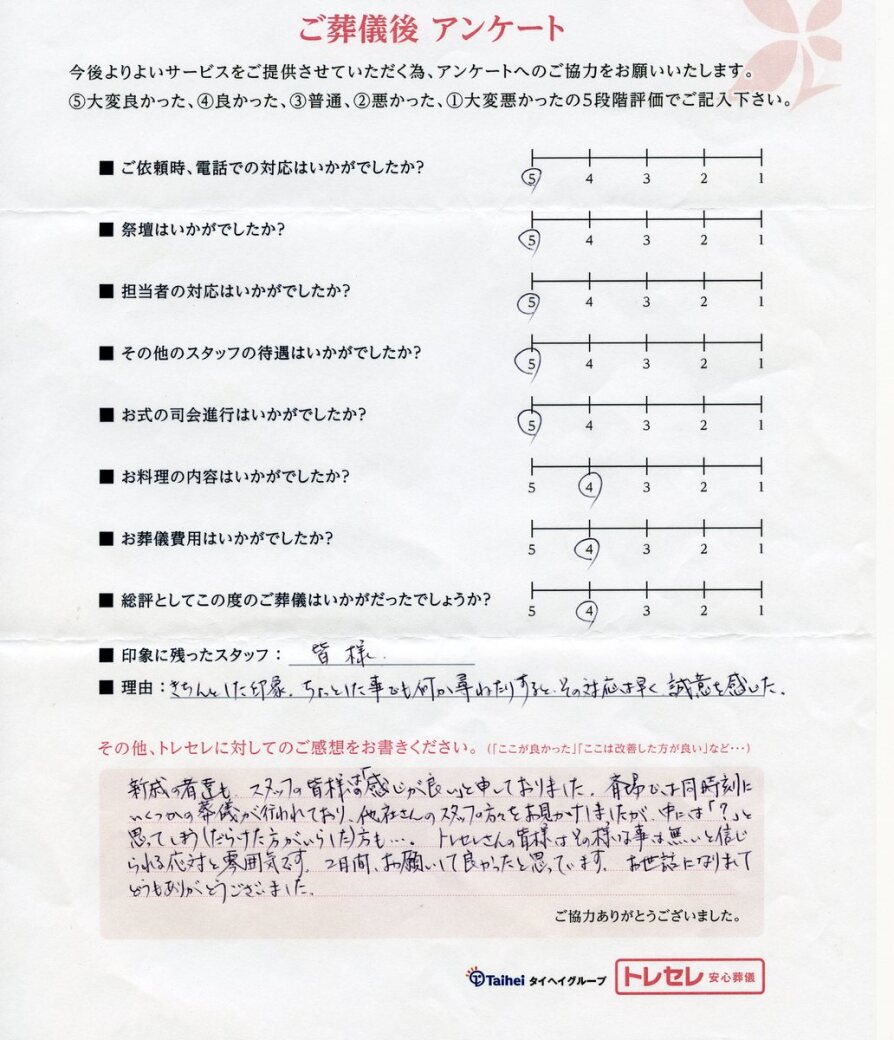 ご葬儀後 アンケート
今後よりよいサービスをご提供させていただく為、アンケートへのご協力をお願いいたします。
⑤大変良かった、④良かった、③普通、②悪かった、①大変悪かったの5段階評価でご記入下さい。
■ ご依頼時、電話での対応はいかがでしたか？
5 4 3 2 1
■ 祭壇はいかがでしたか？
5 4 3 2 1
■ 担当者の対応はいかがでしたか？
5 4 3 2 1
■ その他のスタッフの待遇はいかがでしたか？
5 4 3 2 1
■ お式の司会進行はいかがでしたか？
5 4 3 2 1
■ お料理の内容はいかがでしたか？
5 4 3 2 1
■ お葬儀費用はいかがでしたか？
5 4 3 2 1
■ 総評としてこの度のご葬儀はいかがだったでしょうか？
5 4 3 2 1
■ 印象に残ったスタッフ： 皆様.
■ 理由：きちんとした印象。ちょっとした事でも何か尋ねたりすると、その対応は早く、誠意を感じた。
その他、トレセレに対してのご感想をお書きください。（「ここが良かった」「ここは改善した方が良い」など…）
親戚の者達も、スタッフの皆様は「感じが良い」と申しておりました。斎場では同時刻に
いくつかの葬儀が行われており、他社さんのスタッフの方々をお見かけしましたが、中には「？」と
思ってしまう(だらけた方がいらした)方も…。トレセレさんの皆様はその様な事は無いと信じ
られる応対と雰囲気です。2日間、お願いして良かったと思っています。お世話になりまして
どうもありがとうございました。
ご協力ありがとうございました。
Taihei タイヘイグループ トレセレ 安心葬儀